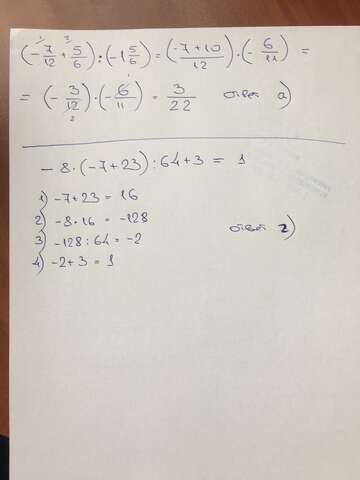 (-7/12 + 5/6) : (-1 5/6) = ((-7+10)/12) · (-6/11) =
= (-3/12) · (-6/11) = 3/22 ответ а)
-8·(-7+23):64+3 = 1
1) -7+23 = 16
2) -8·16 = -128
3) -128:64 = -2
ответ г)
4) -2+3 = 1